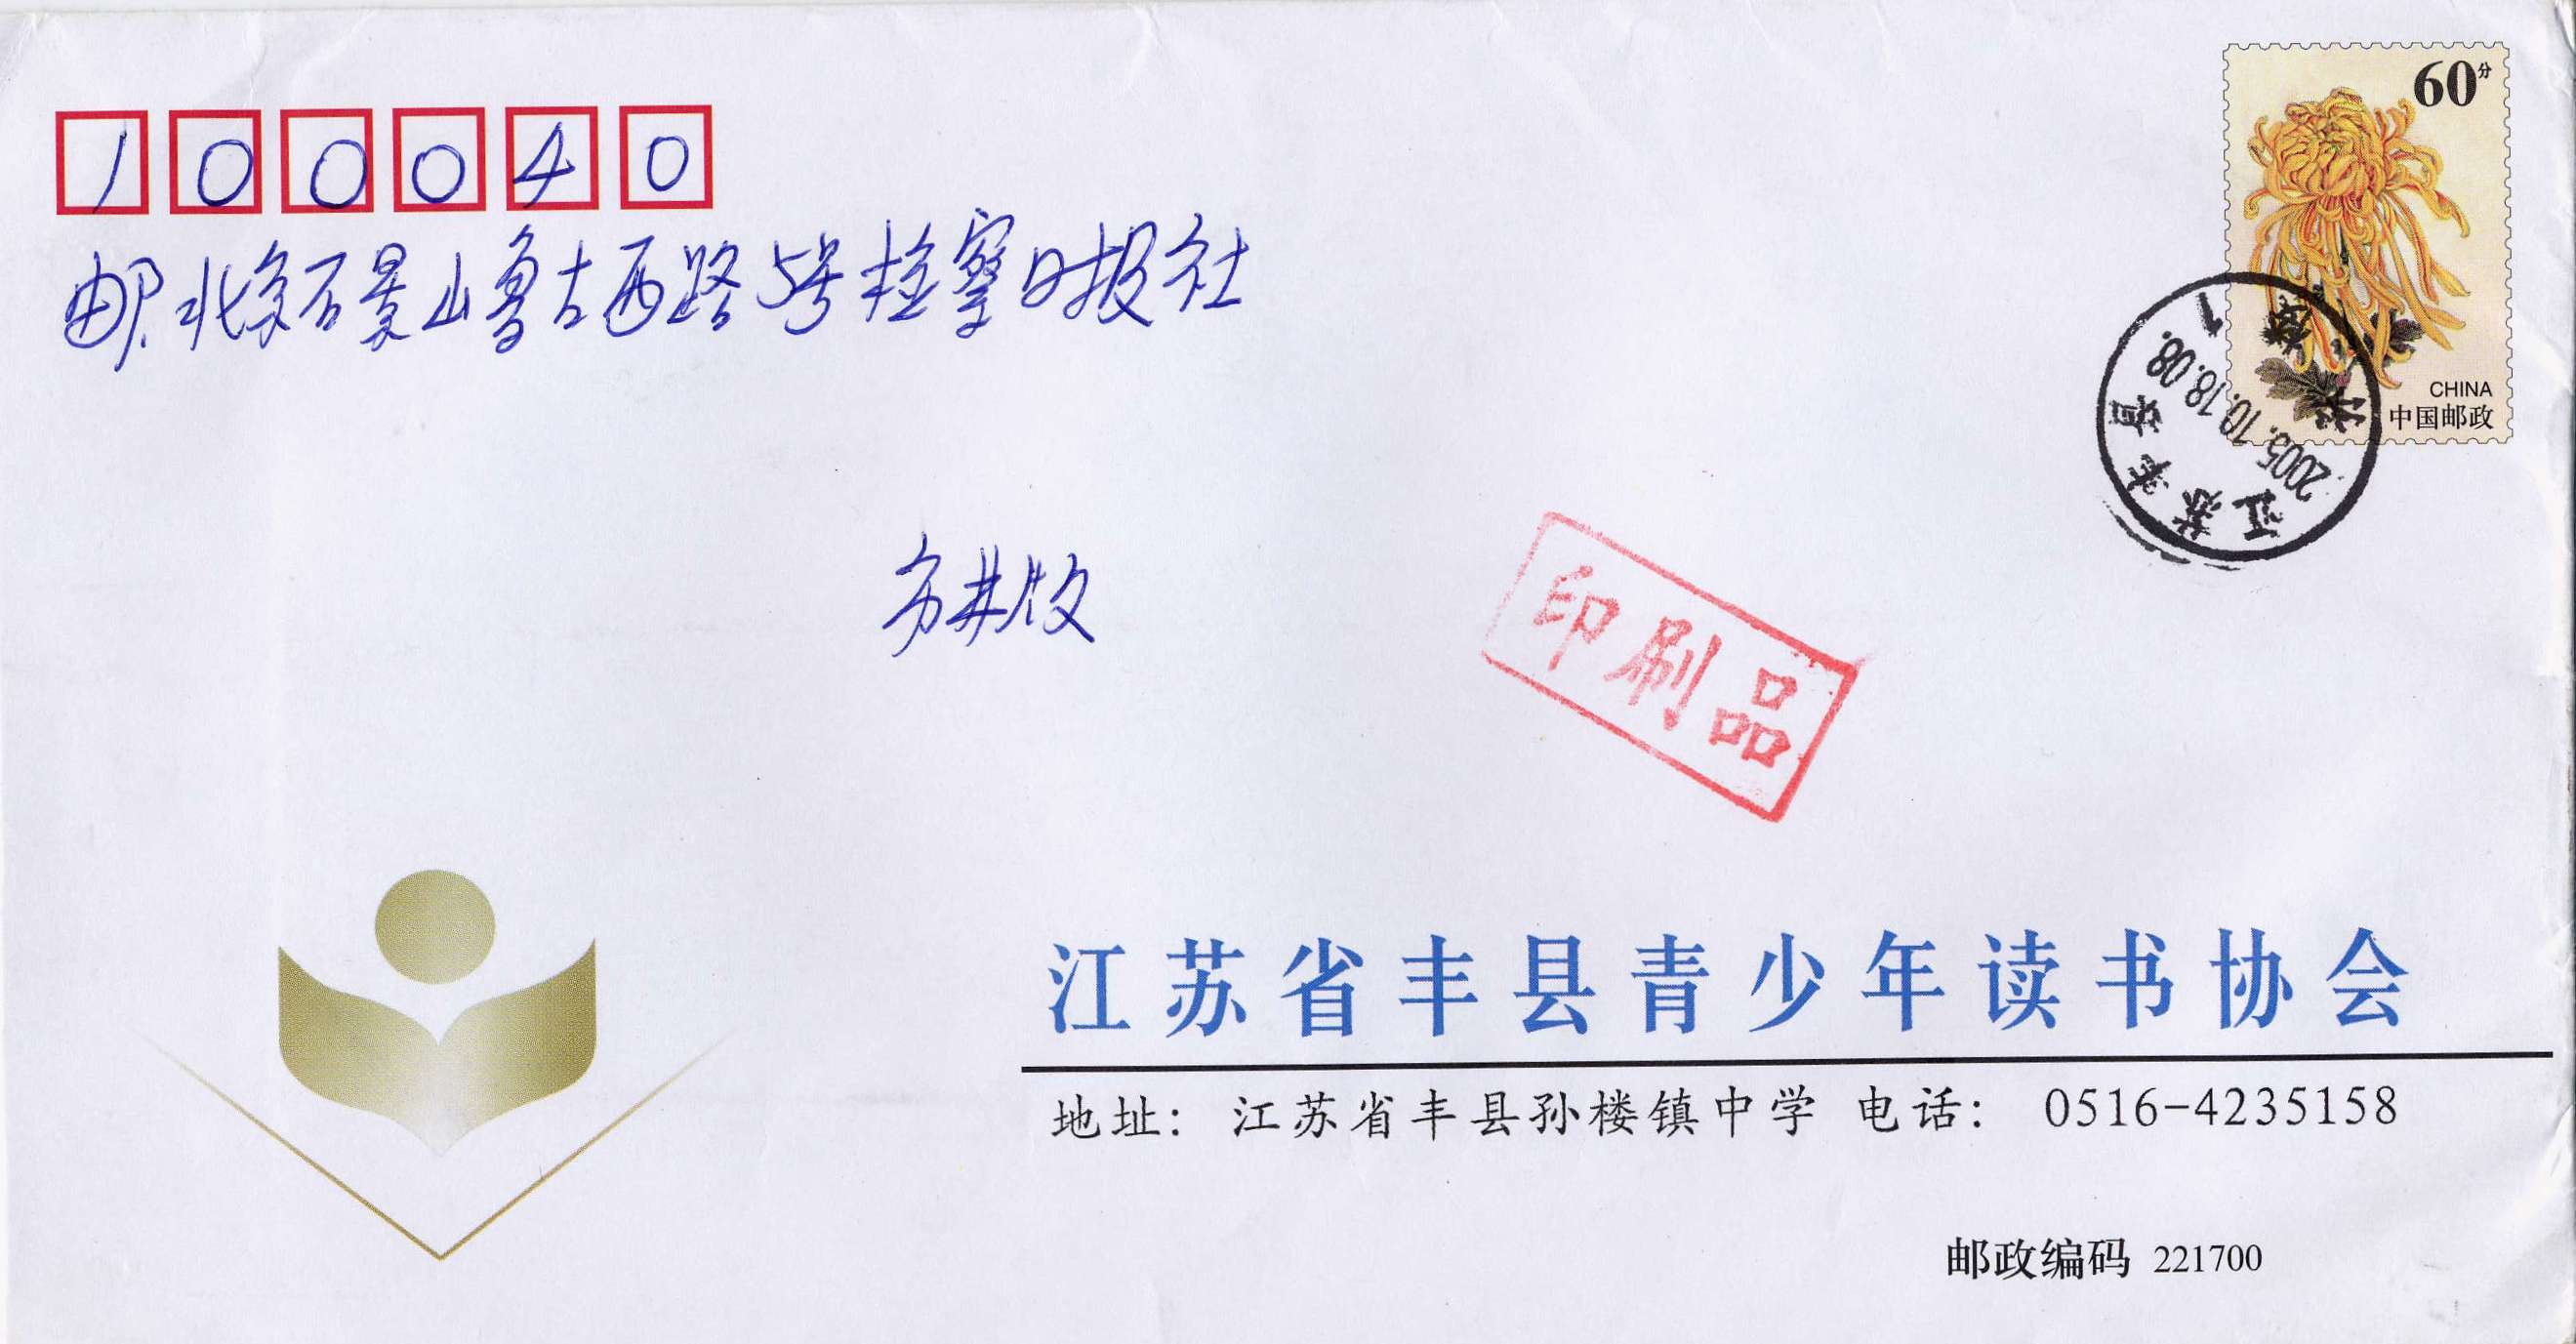 100040
60分
邮.北京石景山鲁古西路5号检察日报社
CHINA
中国邮政
江苏丰县
2005.10.18.08.
孙楼
1
印刷品
江苏省丰县青少年读书协会
地址： 江苏省丰县孙楼镇中学 电话： 0516-4235158
邮政编码 221700